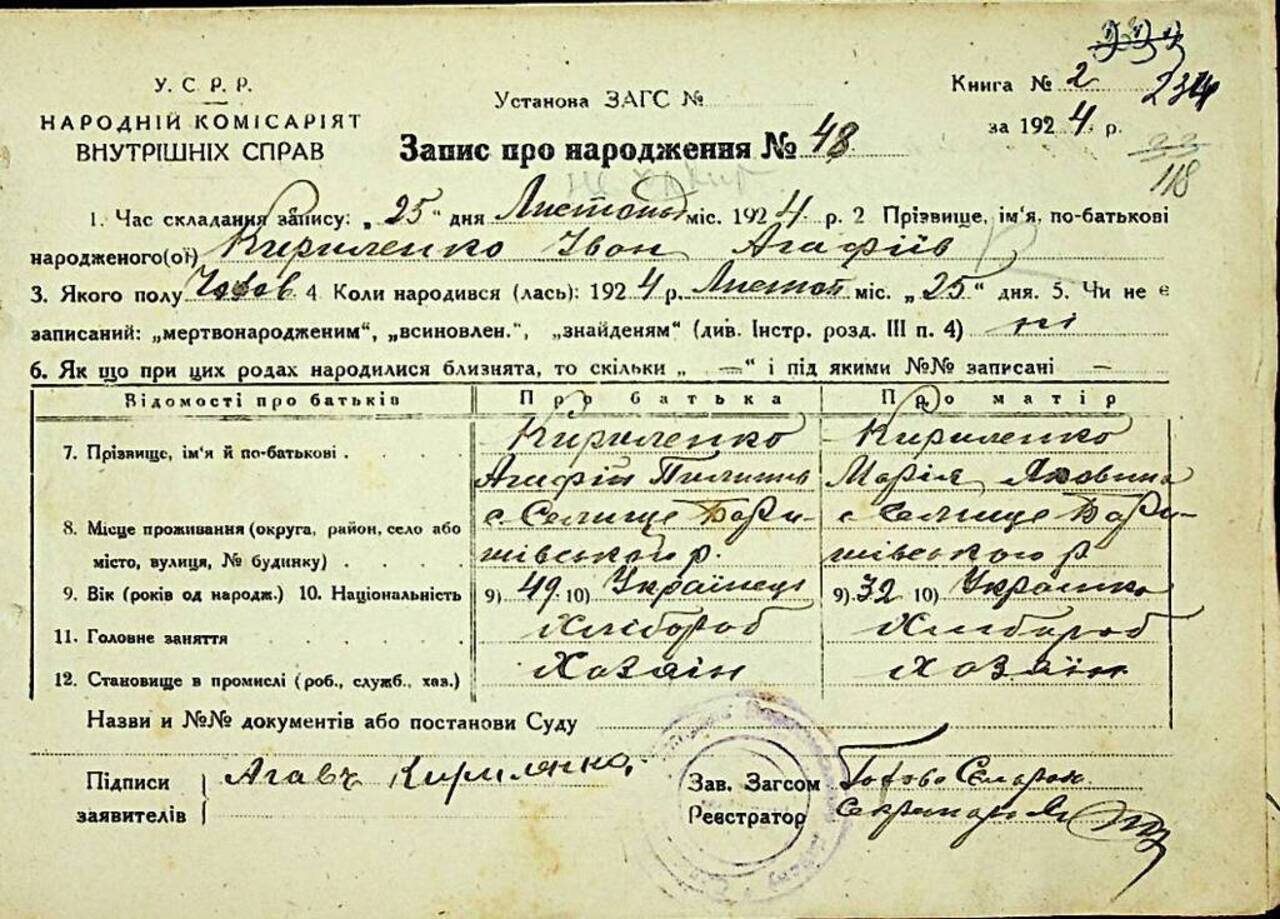 234
У. С. Р. Р.
НАРОДНІЙ КОМІСАРІЯТ
ВНУТРІШНІХ СПРАВ
Установа ЗАГС №
Книга № 2
за 1924 р.
118
Запис про народження № 48
1. Час складання запису: „25“ дня Листопад міс. 1924 р. 2 Прізвище, ім'я, по-батькові
народженого(ої) Кириленко Іван Агафіїв
3. Якого полу Чолов 4 Коли народився (лась): 1924 р. Листоп міс. „25“ дня. 5. Чи не є
записаний: „мертвонародженим“, „всиновлен.“, „знайденям“ (див. Інстр. розд. III п. 4) ні
6. Як що при цих родах народилися близнята, то скільки „ — “ і під якими №№ записані —
Відомості про батьків Про батька Про матір
7. Прізвище, ім'я й по-батькові Кириленко Кириленко
Агафій Пилипів Марія Яковина
8. Місце проживання (округа, район, село або с. Селище Бари- с Селище Бари-
місто, вулиця, № будинку) шівського р. шівського р
9. Вік (років од народж.) 10. Національність 9) 49 10) Українець 9) 32 10) Українка
11. Головне заняття Хлібороб Хлібороб
12. Становище в промислі (роб., служб., хаз.) Хозяїн Хозяїн
Назви и №№ документів або постанови Суду
Підписи Агавъ Кириленко, Зав. Загсом Голова
заявителів Реєстратор Секретар